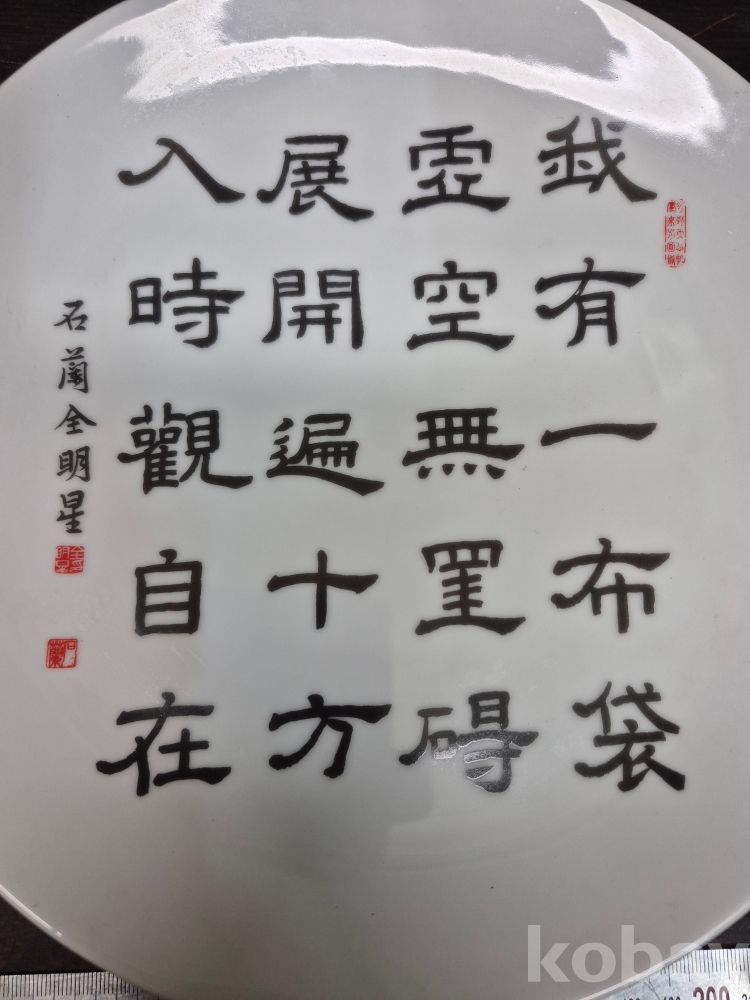 我有一布袋
虛空無罣碍
展開遍十方
入時觀自在
石蘭全明星
kobay
200